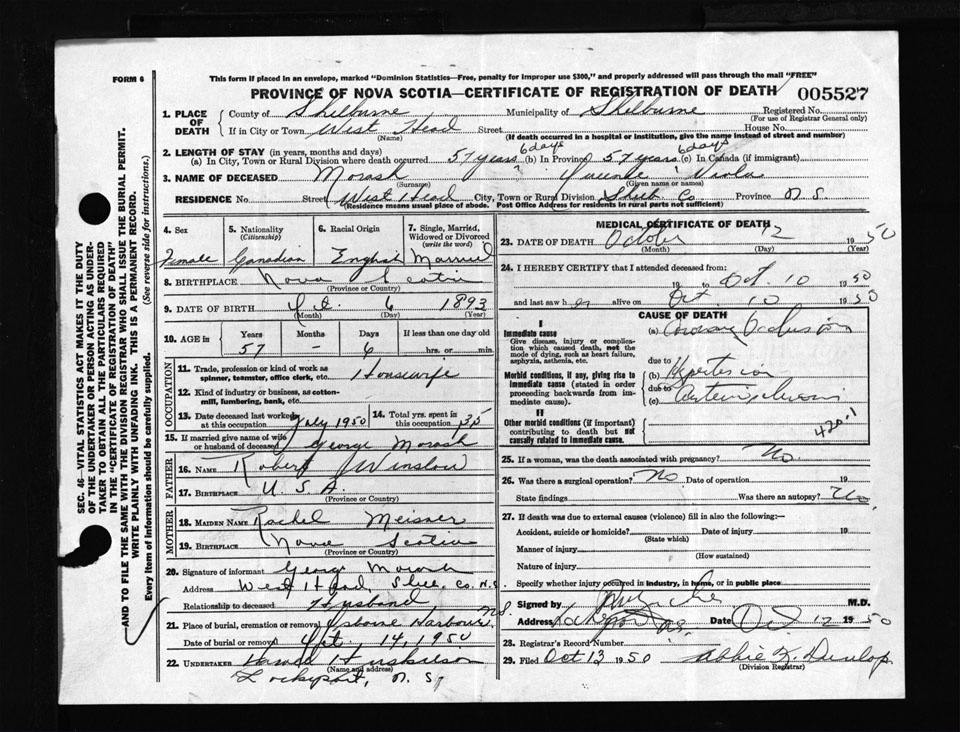 FORM 6
This form if placed in an envelope, marked "Dominion Statistics—Free, penalty for improper use $300," and properly addressed will pass through the mail "FREE"
PROVINCE OF NOVA SCOTIA—CERTIFICATE OF REGISTRATION OF DEATH 005527
1. PLACE OF DEATH
County of Shelburne Municipality of Shelburne Registered No.
(For use of Registrar General only)
If in City or Town West Head Street House No.
(Name) (If death occurred in a hospital or institution, give the name instead of street and number)
2. LENGTH OF STAY (in years, months and days)
(a) In City, Town or Rural Division where death occurred 57 years 6 days (b) In Province 57 years 6 days (c) In Canada (if immigrant)
3. NAME OF DECEASED Morash Viola
(Surname) (Given name or names)
RESIDENCE No. Street West Head City, Town or Rural Division Shelb. Co. Province N.S.
(Residence means usual place of abode. Post Office Address for residents in rural parts not sufficient)
4. Sex Female
5. Nationality (Citizenship) Canadian
6. Racial Origin English
7. Single, Married, Widowed or Divorced (write the word) Married
8. BIRTHPLACE Nova Scotia
(Province or Country)
9. DATE OF BIRTH 6 1893
(Month) (Day) (Year)
10. AGE in Years Months Days If less than one day old
57 – 6 hrs. or min.
OCCUPATION
11. Trade, profession or kind of work as spinner, teamster, office clerk, etc. Housewife
12. Kind of industry or business, as cotton-mill, lumbering, bank, etc.
13. Date deceased last worked at this occupation July 1950
14. Total yrs. spent in this occupation 35
15. If married give name of wife or husband of deceased George Morash
FATHER
16. NAME Robert Winslow
17. BIRTHPLACE U.S.A.
(Province or Country)
MOTHER
18. MAIDEN NAME Rachel Meisner
19. BIRTHPLACE Nova Scotia
(Province or Country)
20. Signature of informant George Morash
Address West Head, Shel. Co. N.S.
Relationship to deceased Husband
21. Place of burial, cremation or removal Osborne Harbour N.S.
Date of burial or removal 14, 1950
22. UNDERTAKER Harold Huskilson
(Name and address)
Lockeport, N.S.
MEDICAL CERTIFICATE OF DEATH
23. DATE OF DEATH October 12 1950
(Month) (Day) (Year)
24. I HEREBY CERTIFY that I attended deceased from:
19 to Oct. 10 1950
and last saw her alive on Oct. 10 1950
CAUSE OF DEATH
I
Immediate cause
Give disease, injury or complication which caused death, not the mode of dying, such as heart failure, asphyxia, asthenia, etc.
(a) Coronary Occlusion
due to
Morbid conditions, if any, giving rise to immediate cause (stated in order proceeding backwards from immediate cause).
(b) Hypertension
due to
(c) Arteriosclerosis
II
Other morbid conditions (if important) contributing to death but not causally related to immediate cause.
420.1
25. If a woman, was the death associated with pregnancy? No.
26. Was there a surgical operation? No Date of operation 19
State findings Was there an autopsy? No
27. If death was due to external causes (violence) fill in also the following:—
Accident, suicide or homicide? Date of injury 19
(State which)
Manner of injury
(How sustained)
Nature of injury
Specify whether injury occured in industry, in home, or in public place
Signed by M.D.
Address Lockeport N.S. Date Oct 12 1950
28. Registrar's Record Number
29. Filed Oct 13 1950 Abbie K. Dunlop
(Division Registrar)
SEC. 46—VITAL STATISTICS ACT MAKES IT THE DUTY
OF THE UNDERTAKER OR PERSON ACTING AS UNDER-
TAKER TO OBTAIN ALL THE PARTICULARS REQUIRED
IN THE "CERTIFICATE OF REGISTRATION OF DEATH"
—AND TO FILE THE SAME WITH THE DIVISION REGISTRAR WHO SHALL ISSUE THE BURIAL PERMIT.
WRITE PLAINLY WITH UNFADING INK. THIS IS A PERMANENT RECORD.
Every item of information should be carefully supplied. (See reverse side for instructions.)